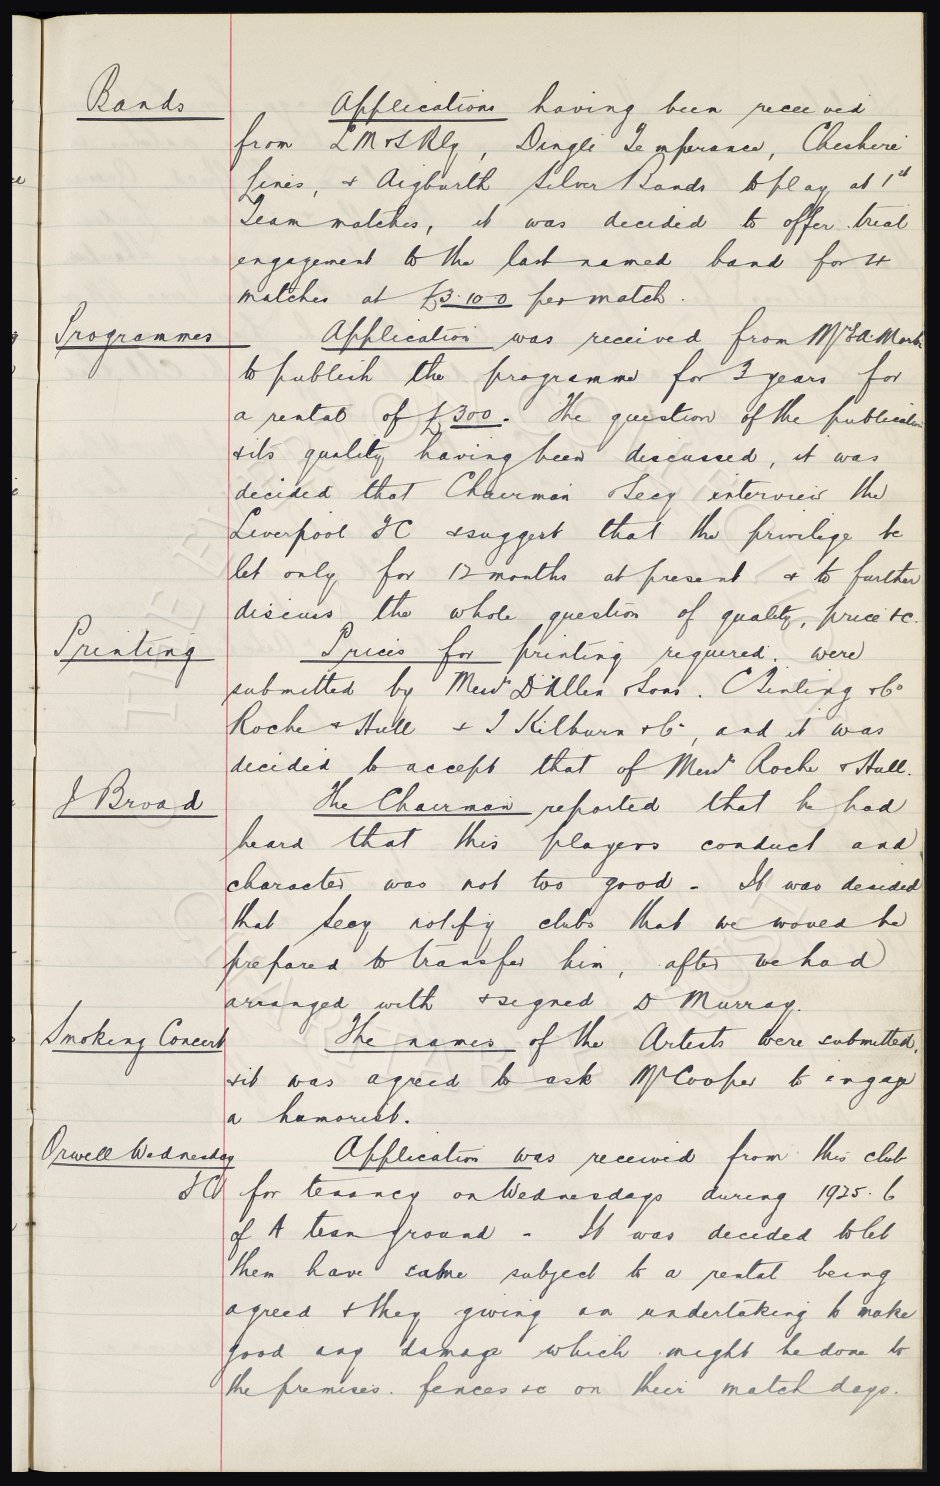 Bands
Applications having been received
from LM & S Rly, Dingle Temperance, Cheshire
Lines, & Aigburth Silver Bands to play at 1st
Team matches, it was decided to offer trial
engagement to the last named band for 4
matches at £3.10.0 per match.
Programmes
Application was received from Mr
to publish the programme for 3 years for
a rental of £300. The question of the publication
& its quality having been discussed, it was
decided that Chairman & Secy interview the
Liverpool FC & suggest that the privilege be
let only for 12 months at present & to further
discuss the whole question of quality, price &c.
Printing
Prices for printing required were
submitted by Messrs D Allen & Sons. C Tinling & Co
Roche & Hull & J Kilburn & Co, and it was
decided to accept that of Messrs Roche & Hull.
J Broad
The Chairman reported that he had
heard that this players conduct and
character was not too good - It was decided
that Secy notify clubs that we would be
prepared to transfer him, after we had
arranged with & signed D Murray.
Smoking Concert
The names of the Artists were submitted,
& it was agreed to ask Mr Cooper to engage
a humorist.
Orwell Wednesday
FC
Application was received from this club
for tenancy on Wednesdays during 1925.6
of A team ground - It was decided to let
them have same subject to a rental being
agreed & they giving an undertaking to make
good any damage which might be done to
the premises. fences &c on their match days.